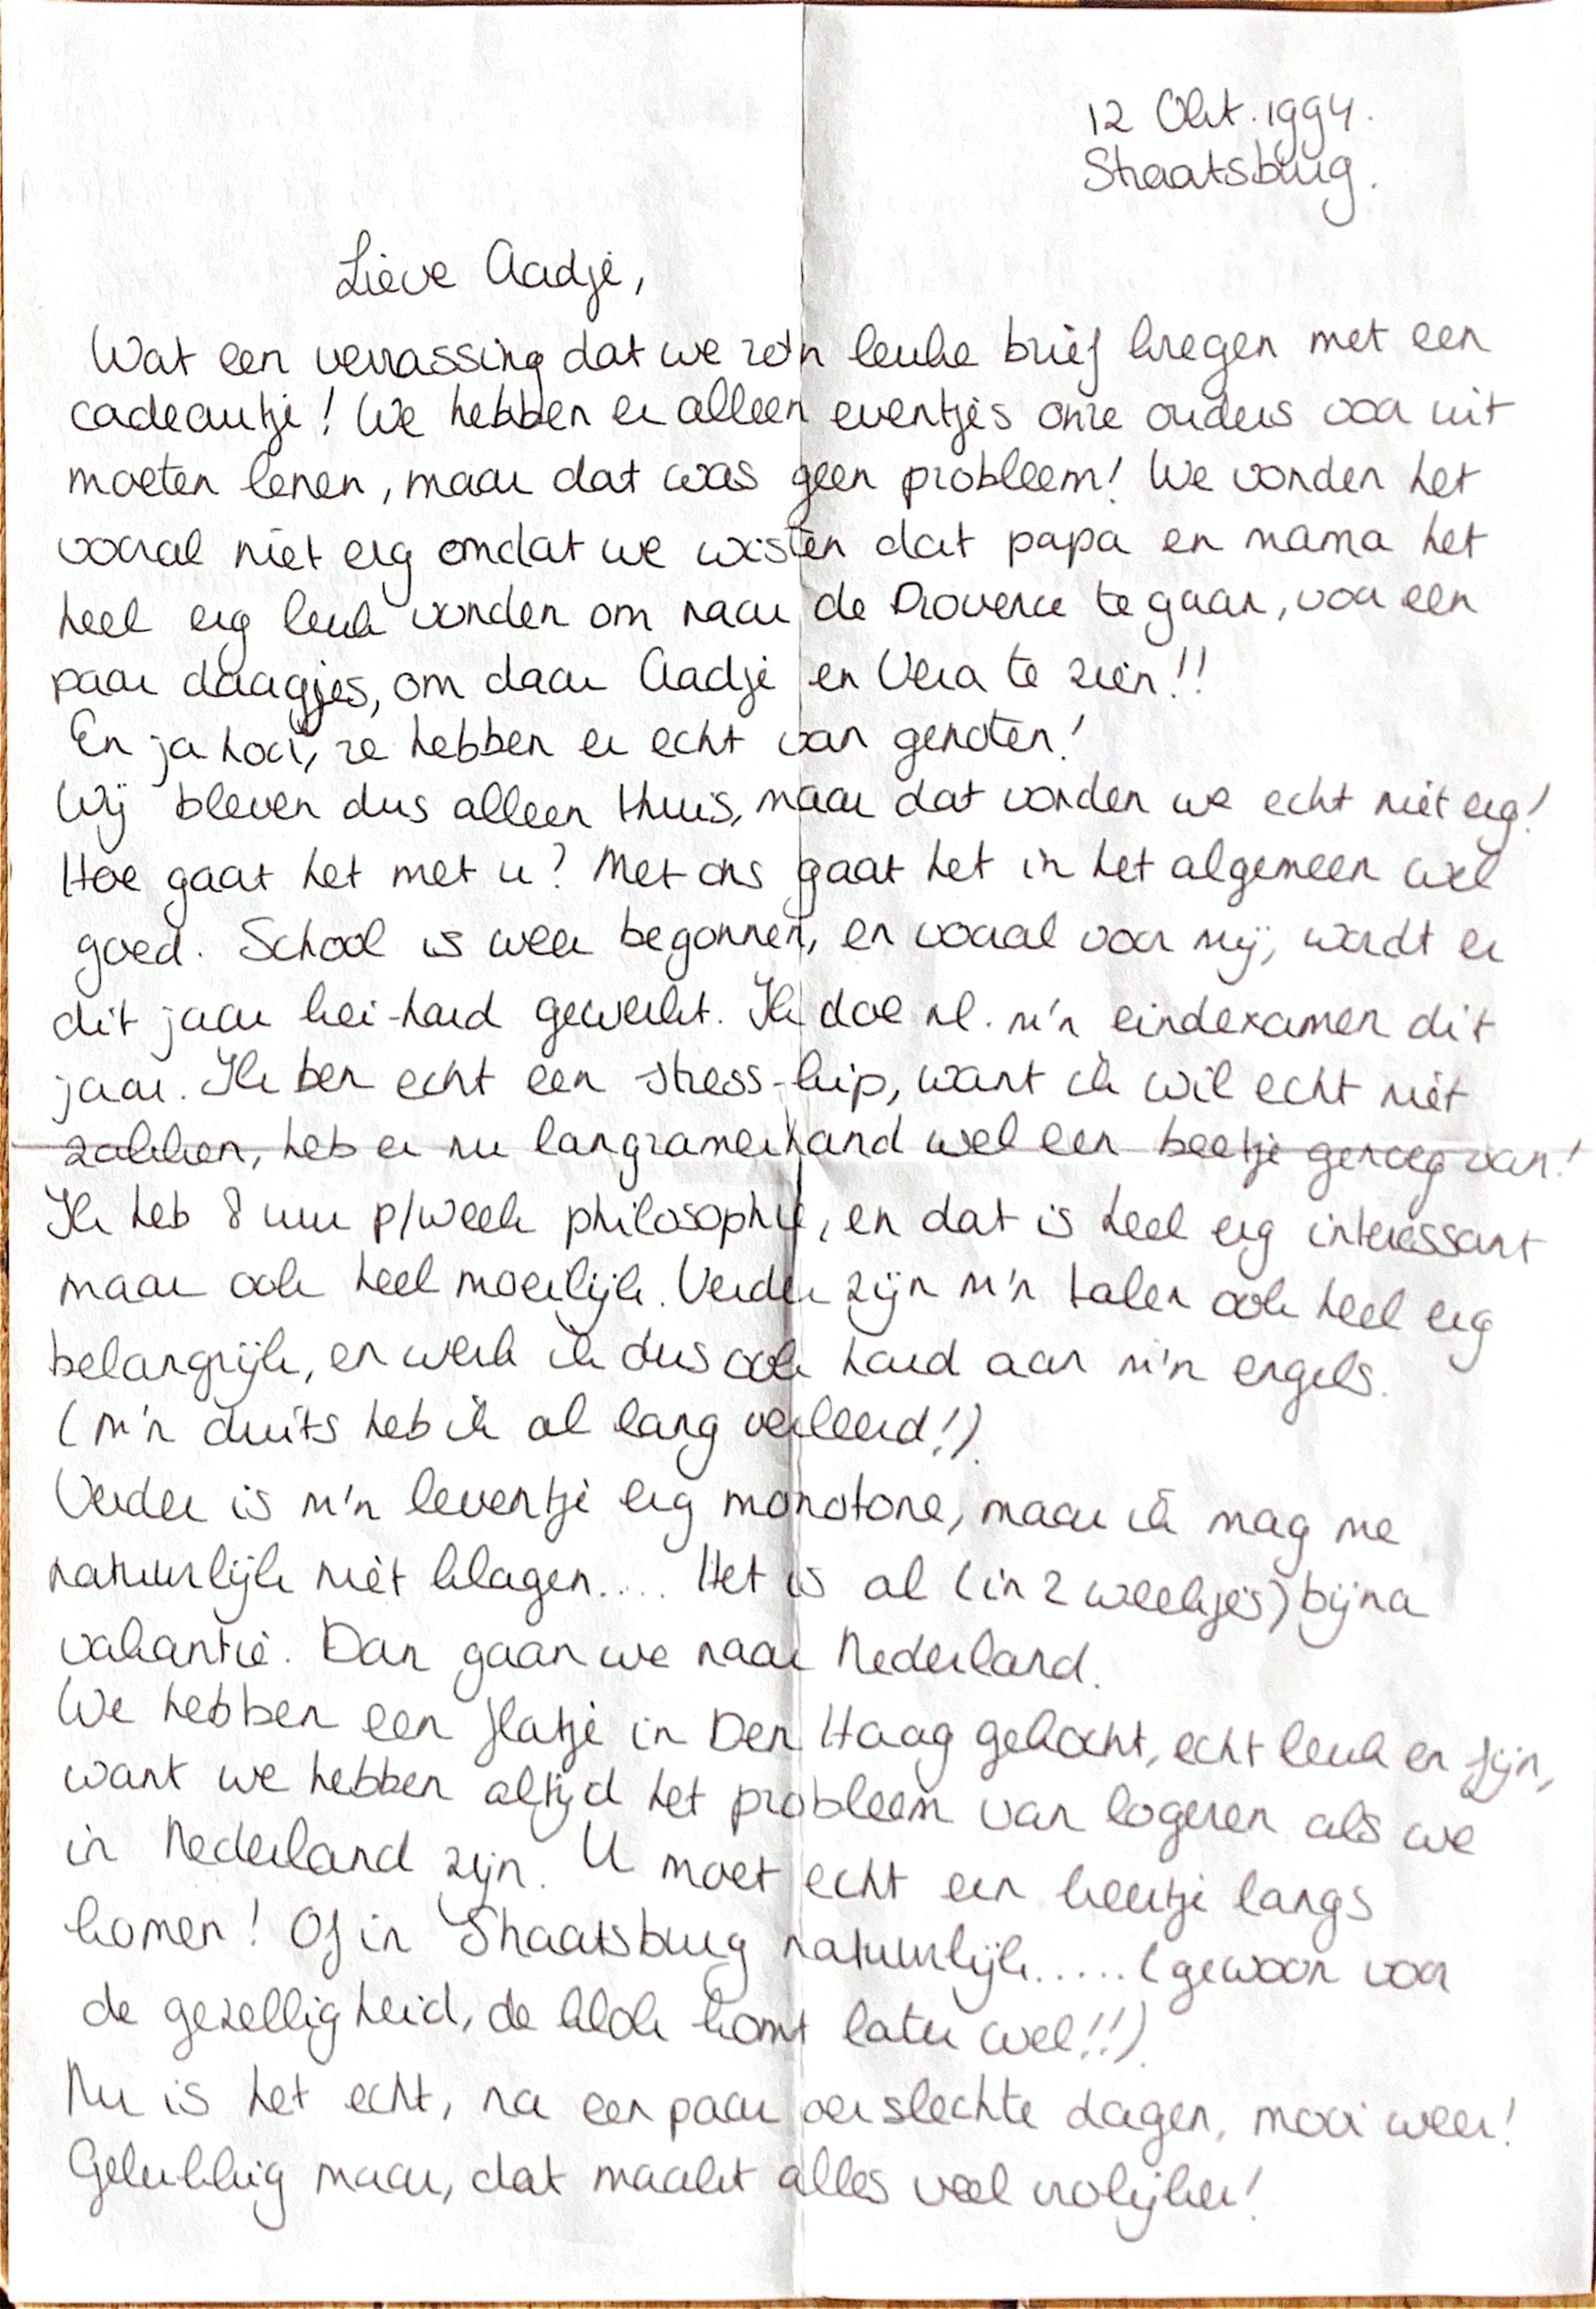 12 Okt. 1994.
Straatsburg.
Lieve Aadje,
Wat een verrassing dat we zo'n leuke brief kregen met een
cadeautje! We hebben er alleen eventjes onze ouders voor uit
moeten lenen, maar dat was geen probleem! We vonden het
vooral niet erg omdat we wisten dat papa en mama het
heel erg leuk vonden om naar de Provence te gaan, voor een
paar daagjes, om daar Aadje en Vera te zien!!
En ja hoor, ze hebben er echt van genoten!
Wij bleven dus alleen thuis, maar dat vonden we echt niet erg!
Hoe gaat het met u? Met ons gaat het in het algemeen wel
goed. School is weer begonnen, en vooral voor mij, wordt er
dit jaar kei-hard gewerkt. Ik doe nl. m'n eindexamen dit
jaar. Ik ben echt een stress-kip, want ik wil echt niet
zakken, heb er nu langzamerhand wel een beetje genoeg van!
Ik heb 8 uur p/week philosophie, en dat is heel erg interessant
maar ook heel moeilijk. Verder zijn m'n talen ook heel erg
belangrijk, en werk ik dus ook hard aan m'n engels.
(m'n duits heb ik al lang verleerd!).
Verder is m'n leventje erg monotone, maar ik mag me
natuurlijk niet klagen.... Het is al (in 2 weekjes) bijna
vakantie. Dan gaan we naar Nederland.
We hebben een flatje in Den Haag gekocht, echt leuk en fijn,
want we hebben altijd het probleem van logeren als we
in Nederland zijn. U moet echt een keertje langs
komen! Of in Straatsburg natuurlijk..... (gewoon voor
de gezelligheid, de klok komt later wel!!).
Nu is het echt, na een paar oer slechte dagen, mooi weer!
Gelukkig maar, dat maakt alles veel vrolijker!